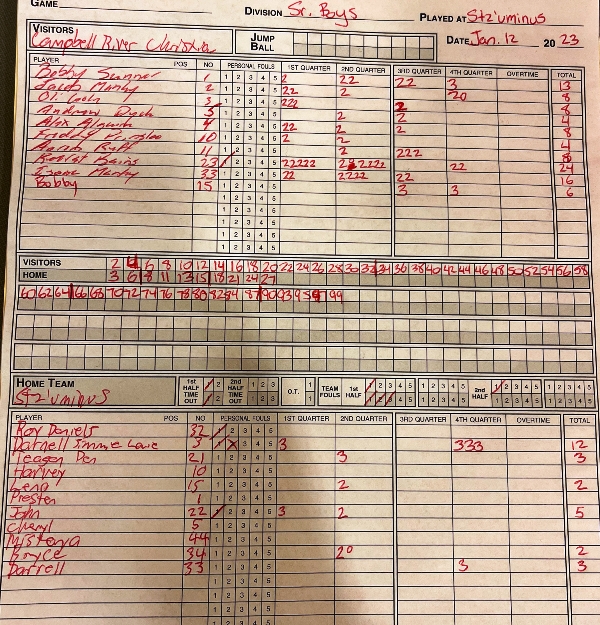 GAME
DIVISION Sr. Boys
PLAYED AT Stz'uminus
VISITORS
Campbell River Christian
JUMP BALL
DATE Jan. 12 20 23
PLAYER POS NO PERSONAL FOULS 1ST QUARTER 2ND QUARTER 3RD QUARTER 4TH QUARTER OVERTIME TOTAL
Bobby 1 1 2 3 4 5 2 22 22 3 13
Jacob Manly 2 1 2 3 4 5 22 2 20 8
3 1 2 3 4 5 222 8
Andrew 5 1 2 3 4 5 2 2
Alex 4 1 2 3 4 5 22 2 2 8
10 1 2 3 4 5 2 2 4
Aaron 11 1 2 3 4 5 2 222 8
Bains 23 1 2 3 4 5 22222 22 24
Manly 33 1 2 3 4 5 22 2222 22 16
Bobby 15 1 2 3 4 5 3 3 6
VISITORS 2 4 6 8 10 12 14 16 18 20 22 24 26 28 30 32 34 36 38 40 42 44 46 48 50 52 54 56 58
HOME 3 6 8 11 13 15 18 21 24 27
60 62 64 66 68 70 72 74 76 78 80 82 84 87 90 93 95 97 99
HOME TEAM
Stz'uminus
1st HALF TIME OUT 1 2 2nd HALF TIME OUT 1 2 3 O.T. 1 TEAM FOULS 1st HALF 1 2 3 4 5 2nd HALF 1 2 3 4 5
PLAYER POS NO PERSONAL FOULS 1ST QUARTER 2ND QUARTER 3RD QUARTER 4TH QUARTER OVERTIME TOTAL
Roy Daniels 32 1 2 3 4 5
Darnell Jimmie Lowe 3 1 2 3 4 5 3 333 12
Teagen Den 21 1 2 3 4 5 3 3
Harvey 10 1 2 3 4 5
15 1 2 3 4 5 2 2
Preston 1 1 2 3 4 5
John 22 1 2 3 4 5 3 2 5
Cheryl 5 1 2 3 4 5
44 1 2 3 4 5
Bryce 34 1 2 3 4 5 20 2
Darrell 33 1 2 3 4 5 3 3